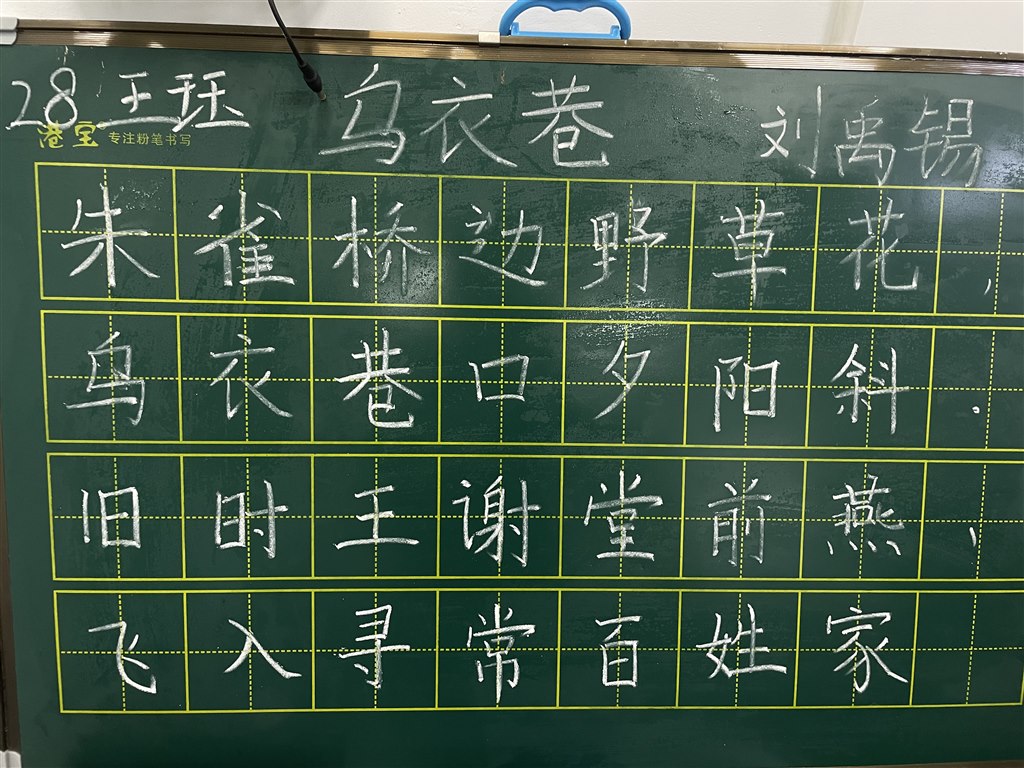 28 王珏 乌衣巷 刘禹锡
港宝 专注粉笔书写
朱雀桥边野草花，
鸟衣巷口夕阳斜。
旧时王谢堂前燕，
飞入寻常百姓家